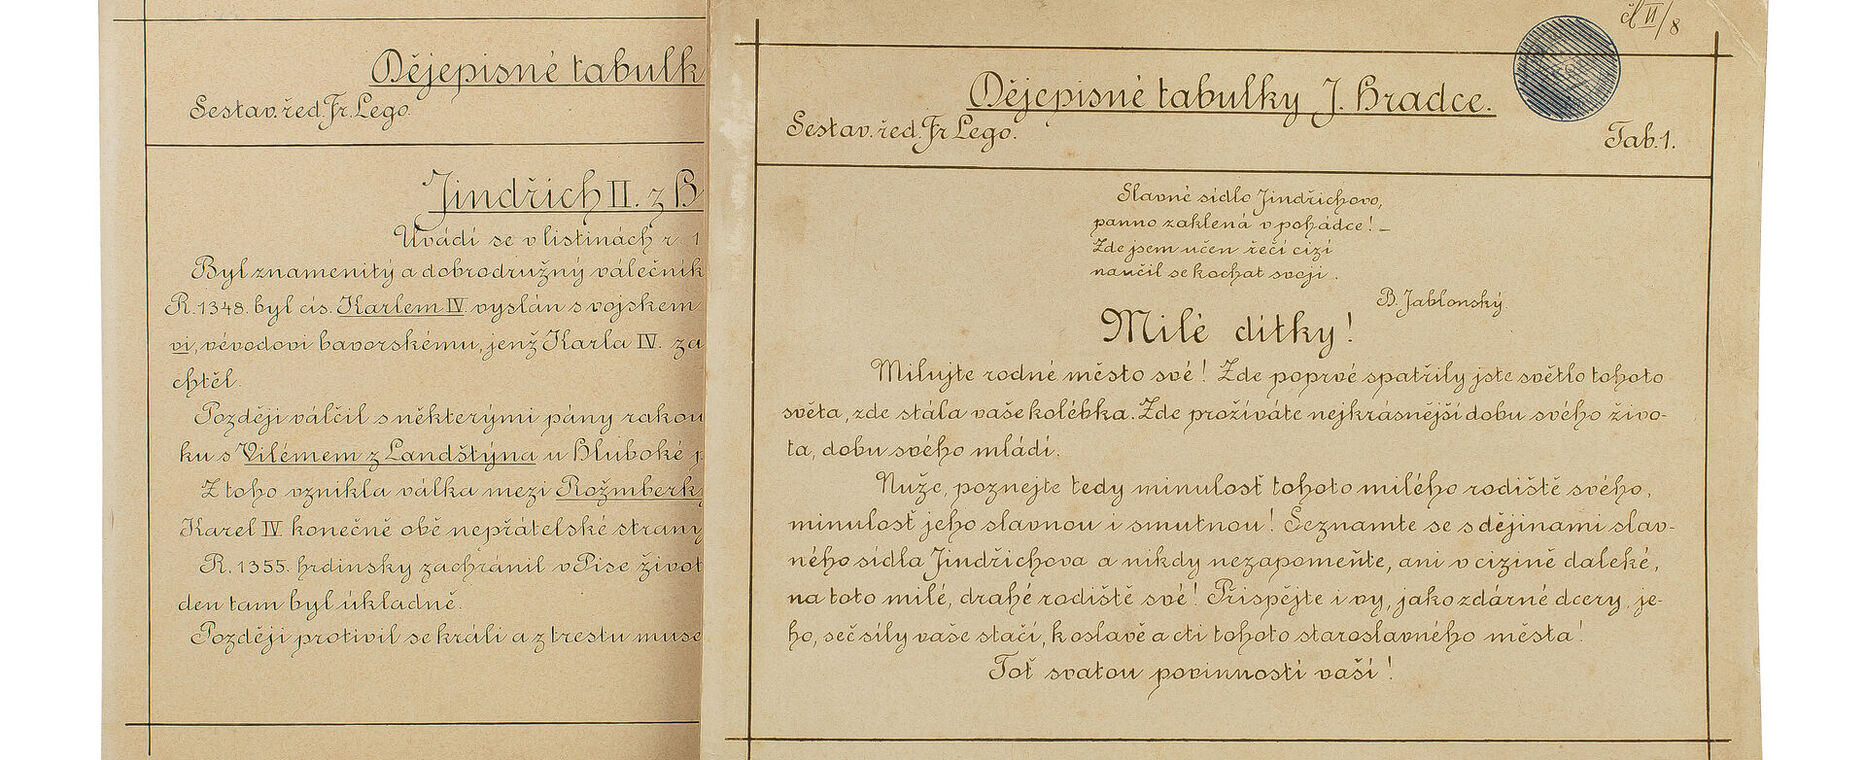 Dějepisné tabulk
Sestav. řed. Fr. Lego.
Jindřich II. z H
Uvádí se v listinách r. 1
Byl znamenitý a dobrodružný válečník
R. 1348. byl cís. Karlem IV. vyslán s vojskem
vi, vévodovi bavorskému, jenž Karla IV. za
chtěl.
Později válčil s některými pány rakou
ku s Vilémem z Landštýna u Hluboké
Z toho vznikla válka mezi Rožmberk
Karel IV. konečně obě nepřátelské strany
R. 1355. hrdinsky zachránil v Pise život
den tam byl úkladně.
Později protivil se králi a z trestu muse
čl II/8
Dějepisné tabulky J. Hradce.
Sestav. řed. Fr Lego.
Tab. 1.
Slavné sídlo Jindřichovo,
panno zaklená v pohádce! –
Zde jsem učen řečí cizí
naučil se kochat svojí.
B. Jablonský.
Milé dítky!
Milujte rodné město své! Zde poprvé spatřily jste světlo tohoto
světa, zde stála vaše kolébka. Zde prožíváte nejkrásnější dobu svého živo-
ta, dobu svého mládí.
Nuže, poznejte tedy minulosť tohoto milého rodiště svého,
minulosť jeho slavnou i smutnou! Seznamte se s dějinami slav-
ného sídla Jindřichova a nikdy nezapomeňte, ani v cizině daleké,
na toto milé, drahé rodiště své! Přispějte i vy, jako zdárné dcery, je-
ho, seč síly vaše stačí, k oslavě a cti tohoto staroslavného města!
Toť svatou povinností vaší!